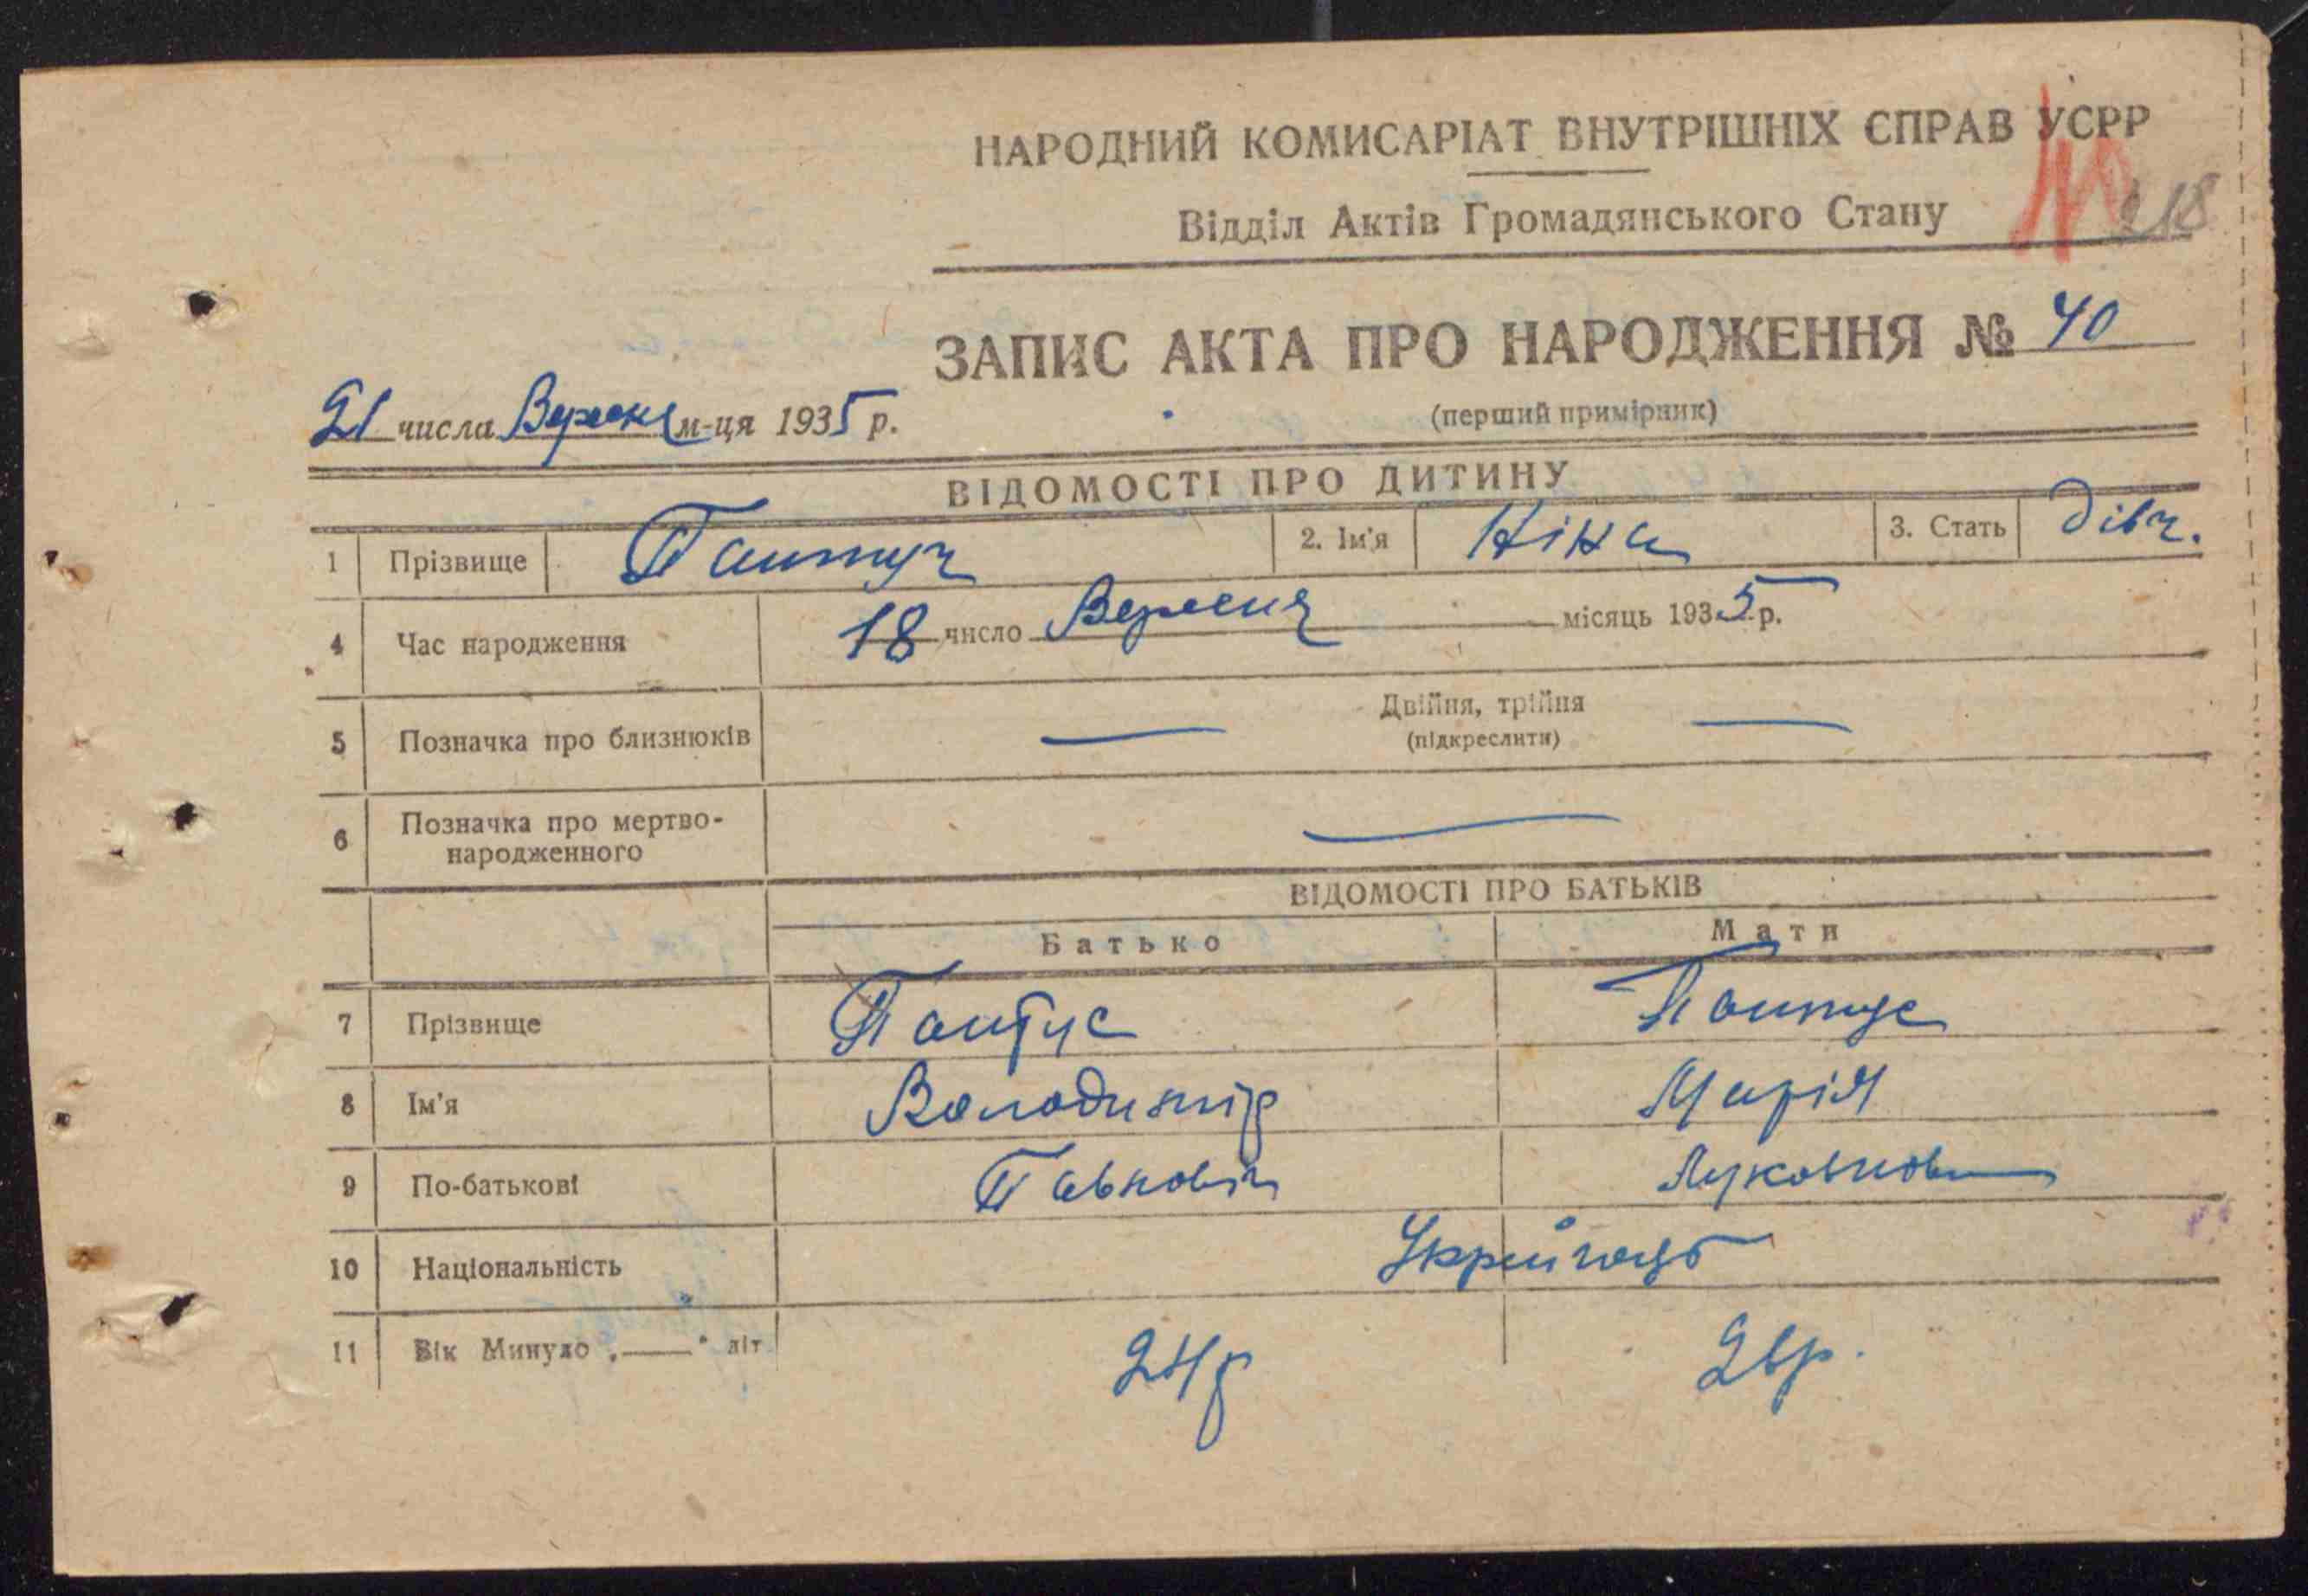 НАРОДНИЙ КОМИСАРІАТ ВНУТРІШНІХ СПРАВ УСРР
Відділ Актів Громадянського Стану
218
ЗАПИС АКТА ПРО НАРОДЖЕННЯ № 40
21 числа Вересня м-ця 1935 р.
(перший примірник)
ВІДОМОСТІ ПРО ДИТИНУ
1 Прізвище 2. Ім'я Ніна 3. Стать дівч.
4 Час народження 18 число Вересня місяць 1935 р.
5 Позначка про близнюків — Двійня, трійня —
(підкреслити)
6 Позначка про мертво-
народженного —
ВІДОМОСТІ ПРО БАТЬКІВ
Батько Мати
7 Прізвище Пантус Пантус
8 Ім'я Володимір Марія
9 По-батькові Павлович
10 Національність
11 Вік Минуло „—“ літ